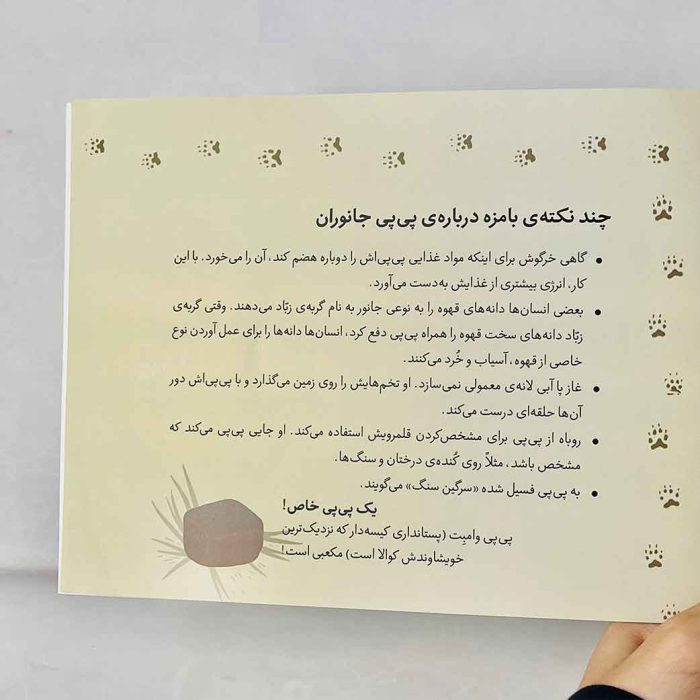 چند نکته‌ی بامزه درباره‌ی پی‌پی جانوران
• گاهی خرگوش برای اینکه مواد غذایی پی‌پی‌اش را دوباره هضم کند، آن را می‌خورد. با این
کار، انرژی بیشتری از غذایش به‌دست می‌آورد.
• بعضی انسان‌ها دانه‌های قهوه را به نوعی جانور به نام گربه‌ی زبّاد می‌دهند. وقتی گربه‌ی
زبّاد دانه‌های سخت قهوه را همراه پی‌پی دفع کرد، انسان‌ها دانه‌ها را برای عمل آوردن نوع
خاصی از قهوه، آسیاب و خُرد می‌کنند.
• غاز پا آبی لانه‌ی معمولی نمی‌سازد. او تخم‌هایش را روی زمین می‌گذارد و با پی‌پی‌اش دور
آن‌ها حلقه‌ای درست می‌کند.
• روباه از پی‌پی برای مشخص‌کردن قلمرویش استفاده می‌کند. او جایی پی‌پی می‌کند که
مشخص باشد، مثلاً روی کُنده‌ی درختان و سنگ‌ها.
• به پی‌پی فسیل شده «سرگین سنگ» می‌گویند.
یک پی‌پی خاص!
پی‌پی وامبِت (پستانداری کیسه‌دار که نزدیک‌ترین
خویشاوندش کوالا است) مکعبی است!